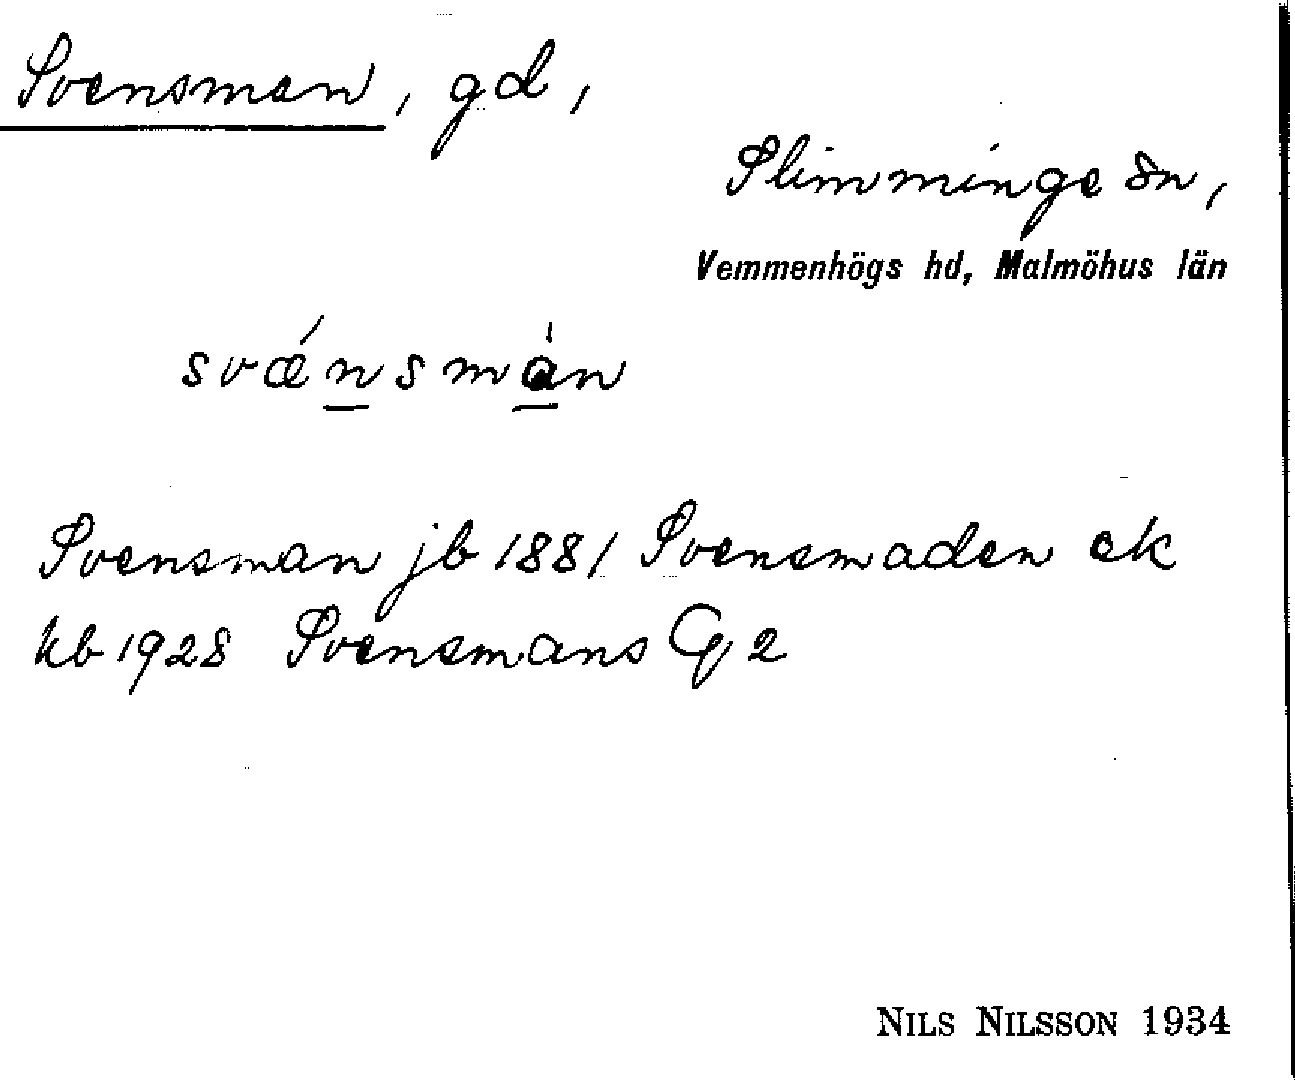 Svensman, gd,
Slimminge sn,
Vemmenhögs hd, Malmöhus län
svǽnsmàn
Svensman jb 1881 Svensmaden ek
kb 1928 Svensmans G 2
NILS NILSSON 1934